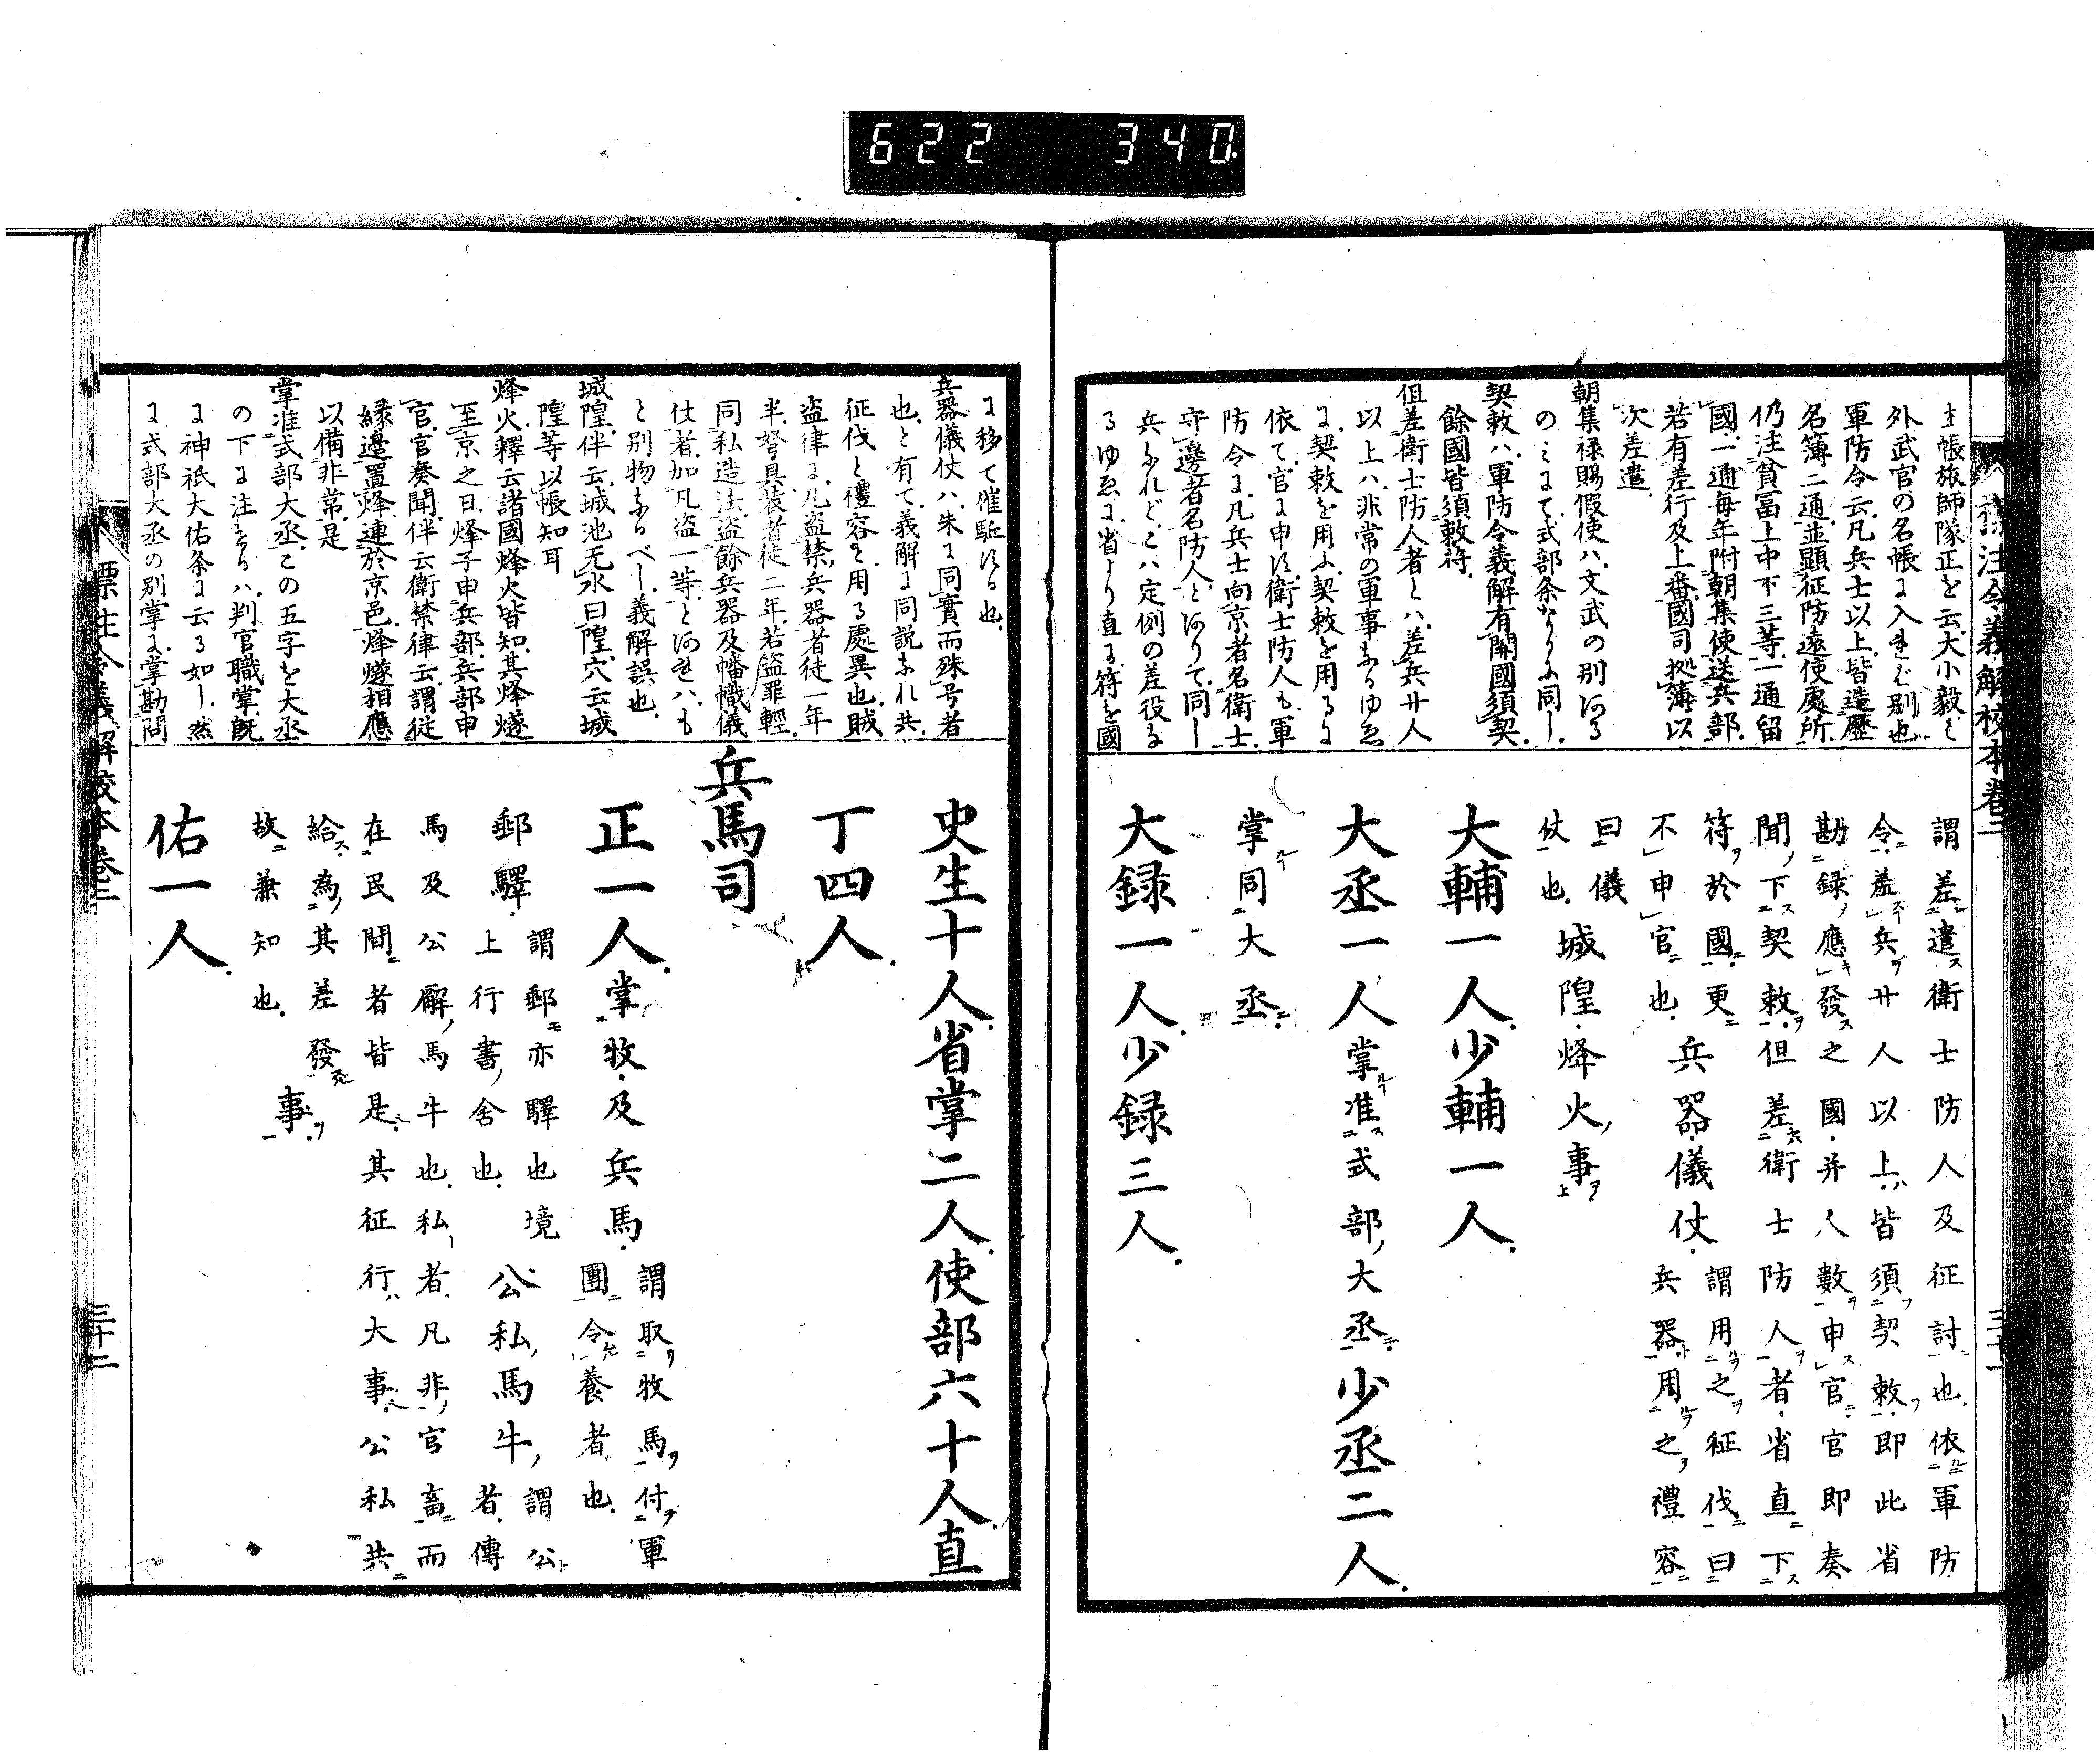 622 340.
標注令義解校本卷二
主帳旅師隊正を云大小毅は
外武官の名帳に入きむ別也
軍防令云凡兵士以上皆造歷
名簿二通並顯征防遠使處所
仍注貧冨上中下三等一通留
國一通每年附朝集使送兵部
若有差行及上番國司據簿以
次差遣
朝集禄賜假使ハ文武の別ある
のミにて式部条なりに同し
契敕ハ軍防令義解有關國須契
餘國皆須敕符
但差衛士防人者とハ差兵廿人
以上ハ非常の軍事なるゆゑ
に契敕を用ふ契敕を用るに
依て官に申す衛士防人も軍
防令に凡兵士向京者名衛士
守邊者名防人とありて同し
兵なれどこハ定例の差役な
るゆゑに省より直に符を國
謂差遣衛士防人及征討也依軍防
令差兵廿人以上皆須契敕即此省
勘録應發之國并人數申官官即奏
聞下契敕但差衛士防人者省直下
符於國更
不申官也
兵器儀仗
謂用之征伐曰
兵器用之禮容
曰儀
仗也
城隍烽火事
大輔一人少輔一人
大丞一人掌准式部大丞少丞二人
掌同大丞
大録一人少録三人
三十一
に移て催駈する也
兵器儀仗ハ朱に同實而殊号者
也と有て義解に同説なれ共
征伐と禮容を用る處異也賊
盗律に凡盗禁兵器者徒一年
半弩具装者徒二年若盗罪輕
同私造法盗餘兵器及幡幟儀
仗者加凡盗一等とあれハも
と別物なるべし義解誤也
城隍伴云城池无水曰隍穴云城
隍等以帳知耳
烽火釋云諸國烽火皆知其烽燧
至京之日烽子申兵部兵部申
官官奏聞伴云衛禁律云謂從
縁邊置烽連於京邑烽燧相應
以備非常是
掌准式部大丞この五字を大丞
の下に注するハ判官職掌既
に神祇大佑条に云る如し然
に式部大丞の別掌に掌勘問
史生十人省掌二人使部六十人直
丁四人
兵馬司
正一人掌牧及兵馬
謂取牧馬付軍
團令養者也
郵驛
謂郵亦驛也境
上行書舍也
公私馬牛
謂公
者傳
馬及公廨馬牛也私者凡非官畜而
在民間者皆是其征行大事公私共
給為其差發
故兼知也
事
佑一人
標注令義解校本卷二
三十二